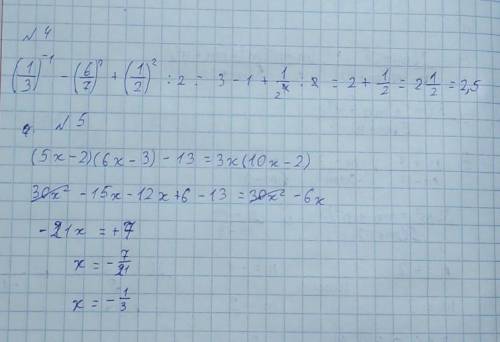 № 4
(1/3)^-1 - (6/7)^0 + (1/2)^2 : 2 = 3 - 1 + 1/2^2 : 2 = 2 + 1/2 = 2 1/2 = 2,5
№ 5
(5x-2)(6x-3) - 13 = 3x(10x-2)
30x² - 15x - 12x + 6 - 13 = 30x² - 6x
-21x = +7
x = -7/21
x = -1/3